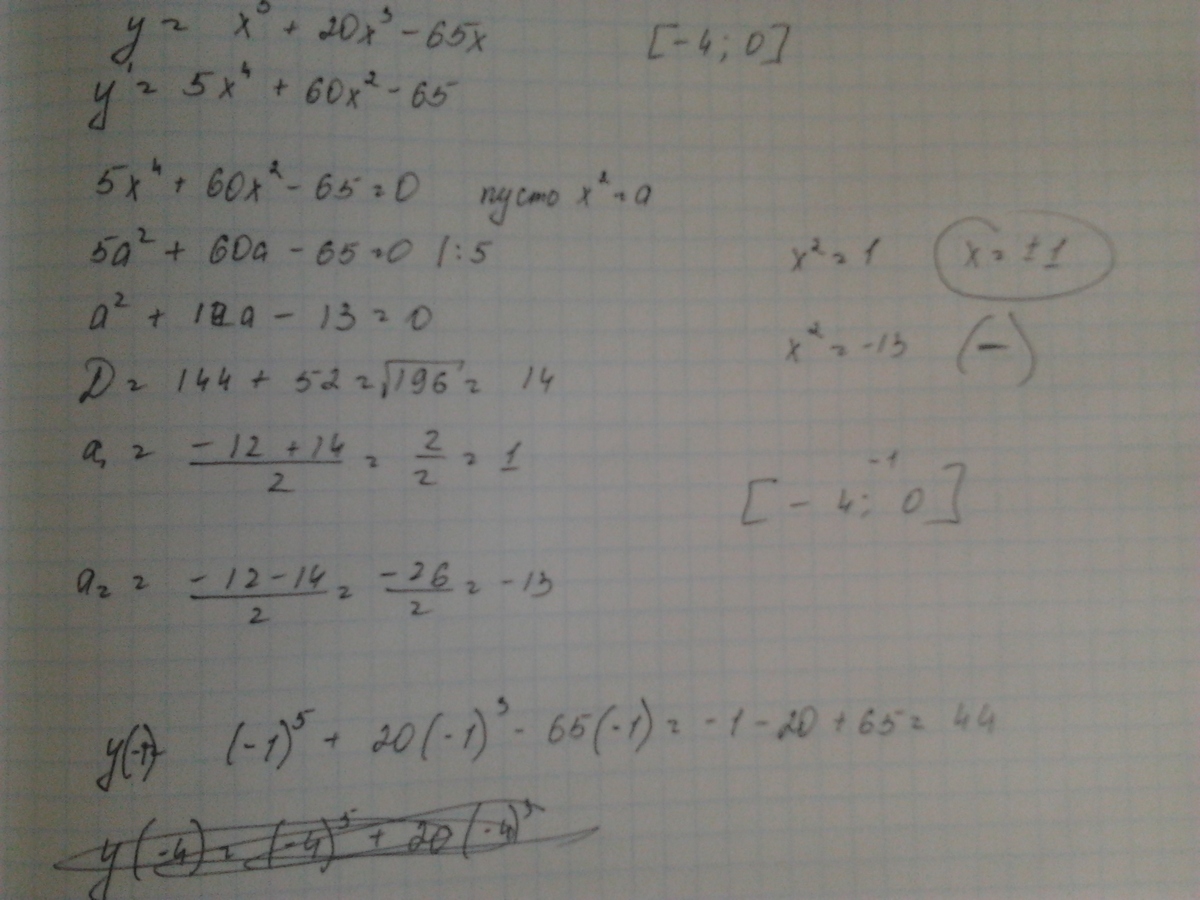 y = x⁵ + 20x³ - 65x [-4; 0]
y' = 5x⁴ + 60x² - 65
5x⁴ + 60x² - 65 = 0 пусто x² = a
5a² + 60a - 65 = 0 | : 5 x² = 1 x = ±1
a² + 12a - 13 = 0 x² = -13 (-)
D = 144 + 52 = √196 = 14
a₁ = (-12 + 14)/2 = 2/2 = 1
[-4; -1 0]
a₂ = (-12-14)/2 = -26/2 = -13
y(-1) (-1)⁵ + 20(-1)³ - 65(-1) = -1 - 20 + 65 = 44
y(-4) = (-4)⁵ + 20(-4)³